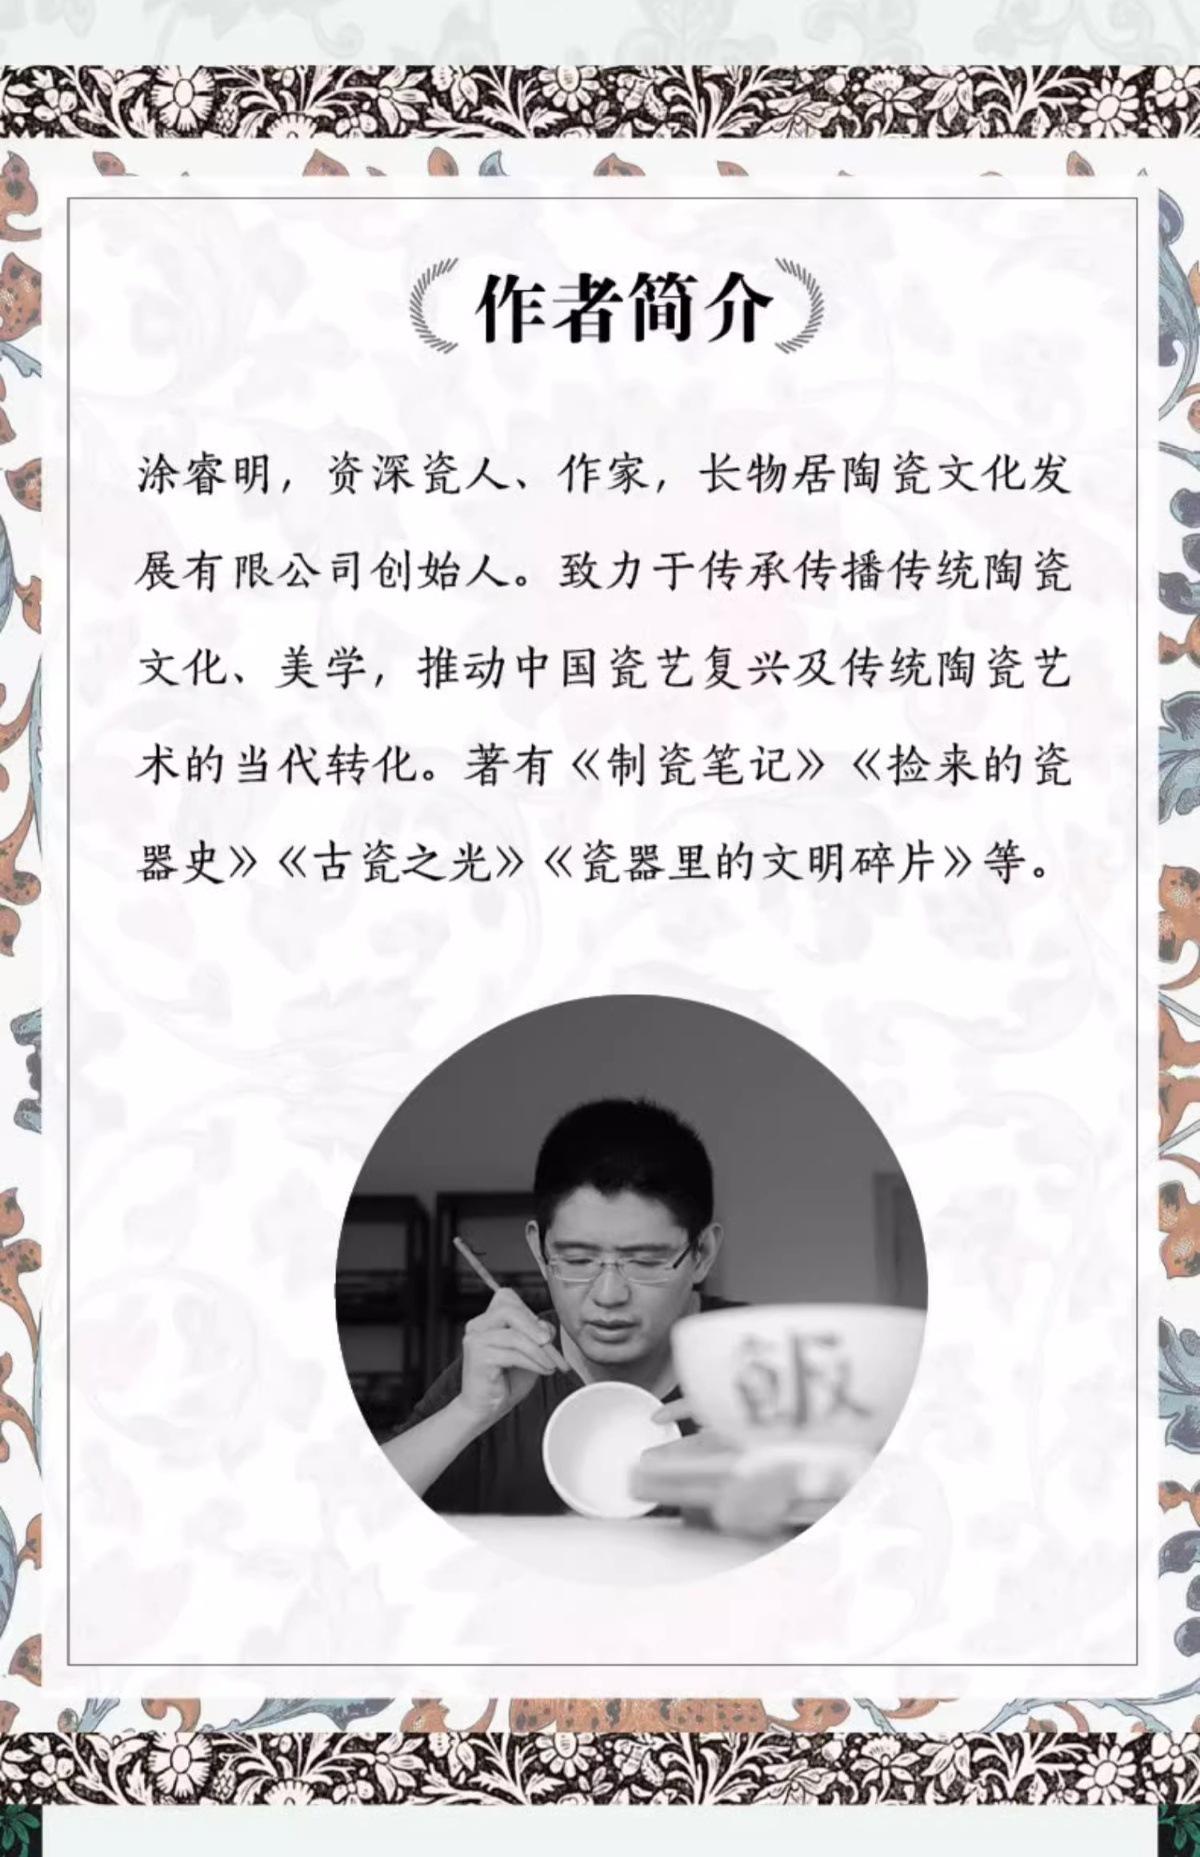 作者简介
涂睿明，资深瓷人、作家，长物居陶瓷文化发
展有限公司创始人。致力于传承传播传统陶瓷
文化、美学，推动中国瓷艺复兴及传统陶瓷艺
术的当代转化。著有《制瓷笔记》《捡来的瓷
器史》《古瓷之光》《瓷器里的文明碎片》等。
飯